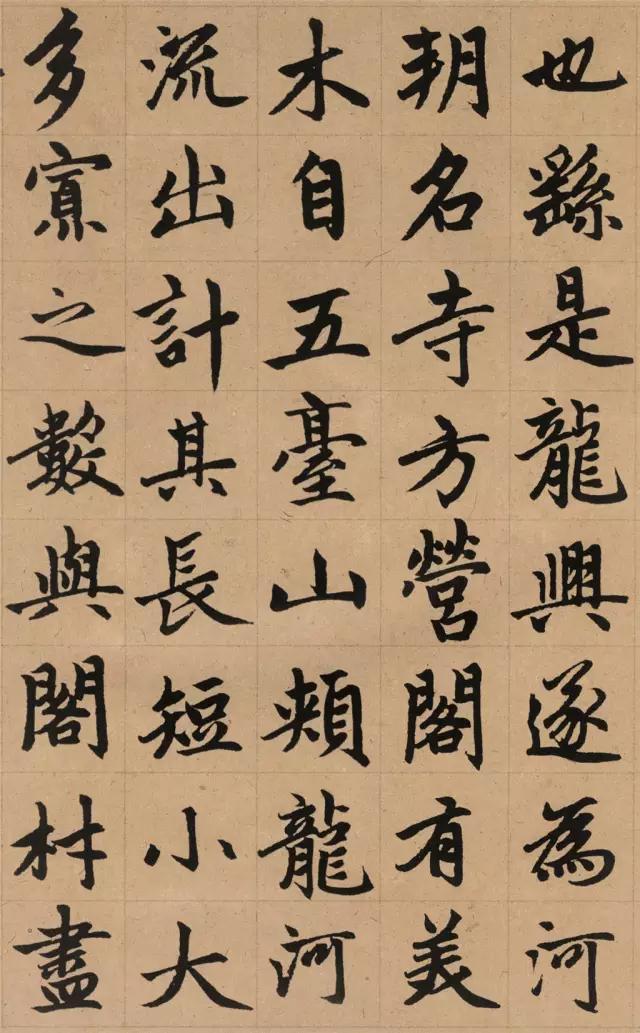 也繇是龍興遂為河
朔名寺方營閣有美
木自五臺山頰龍河
流出計其長短小大
多寡之數與閣材盡